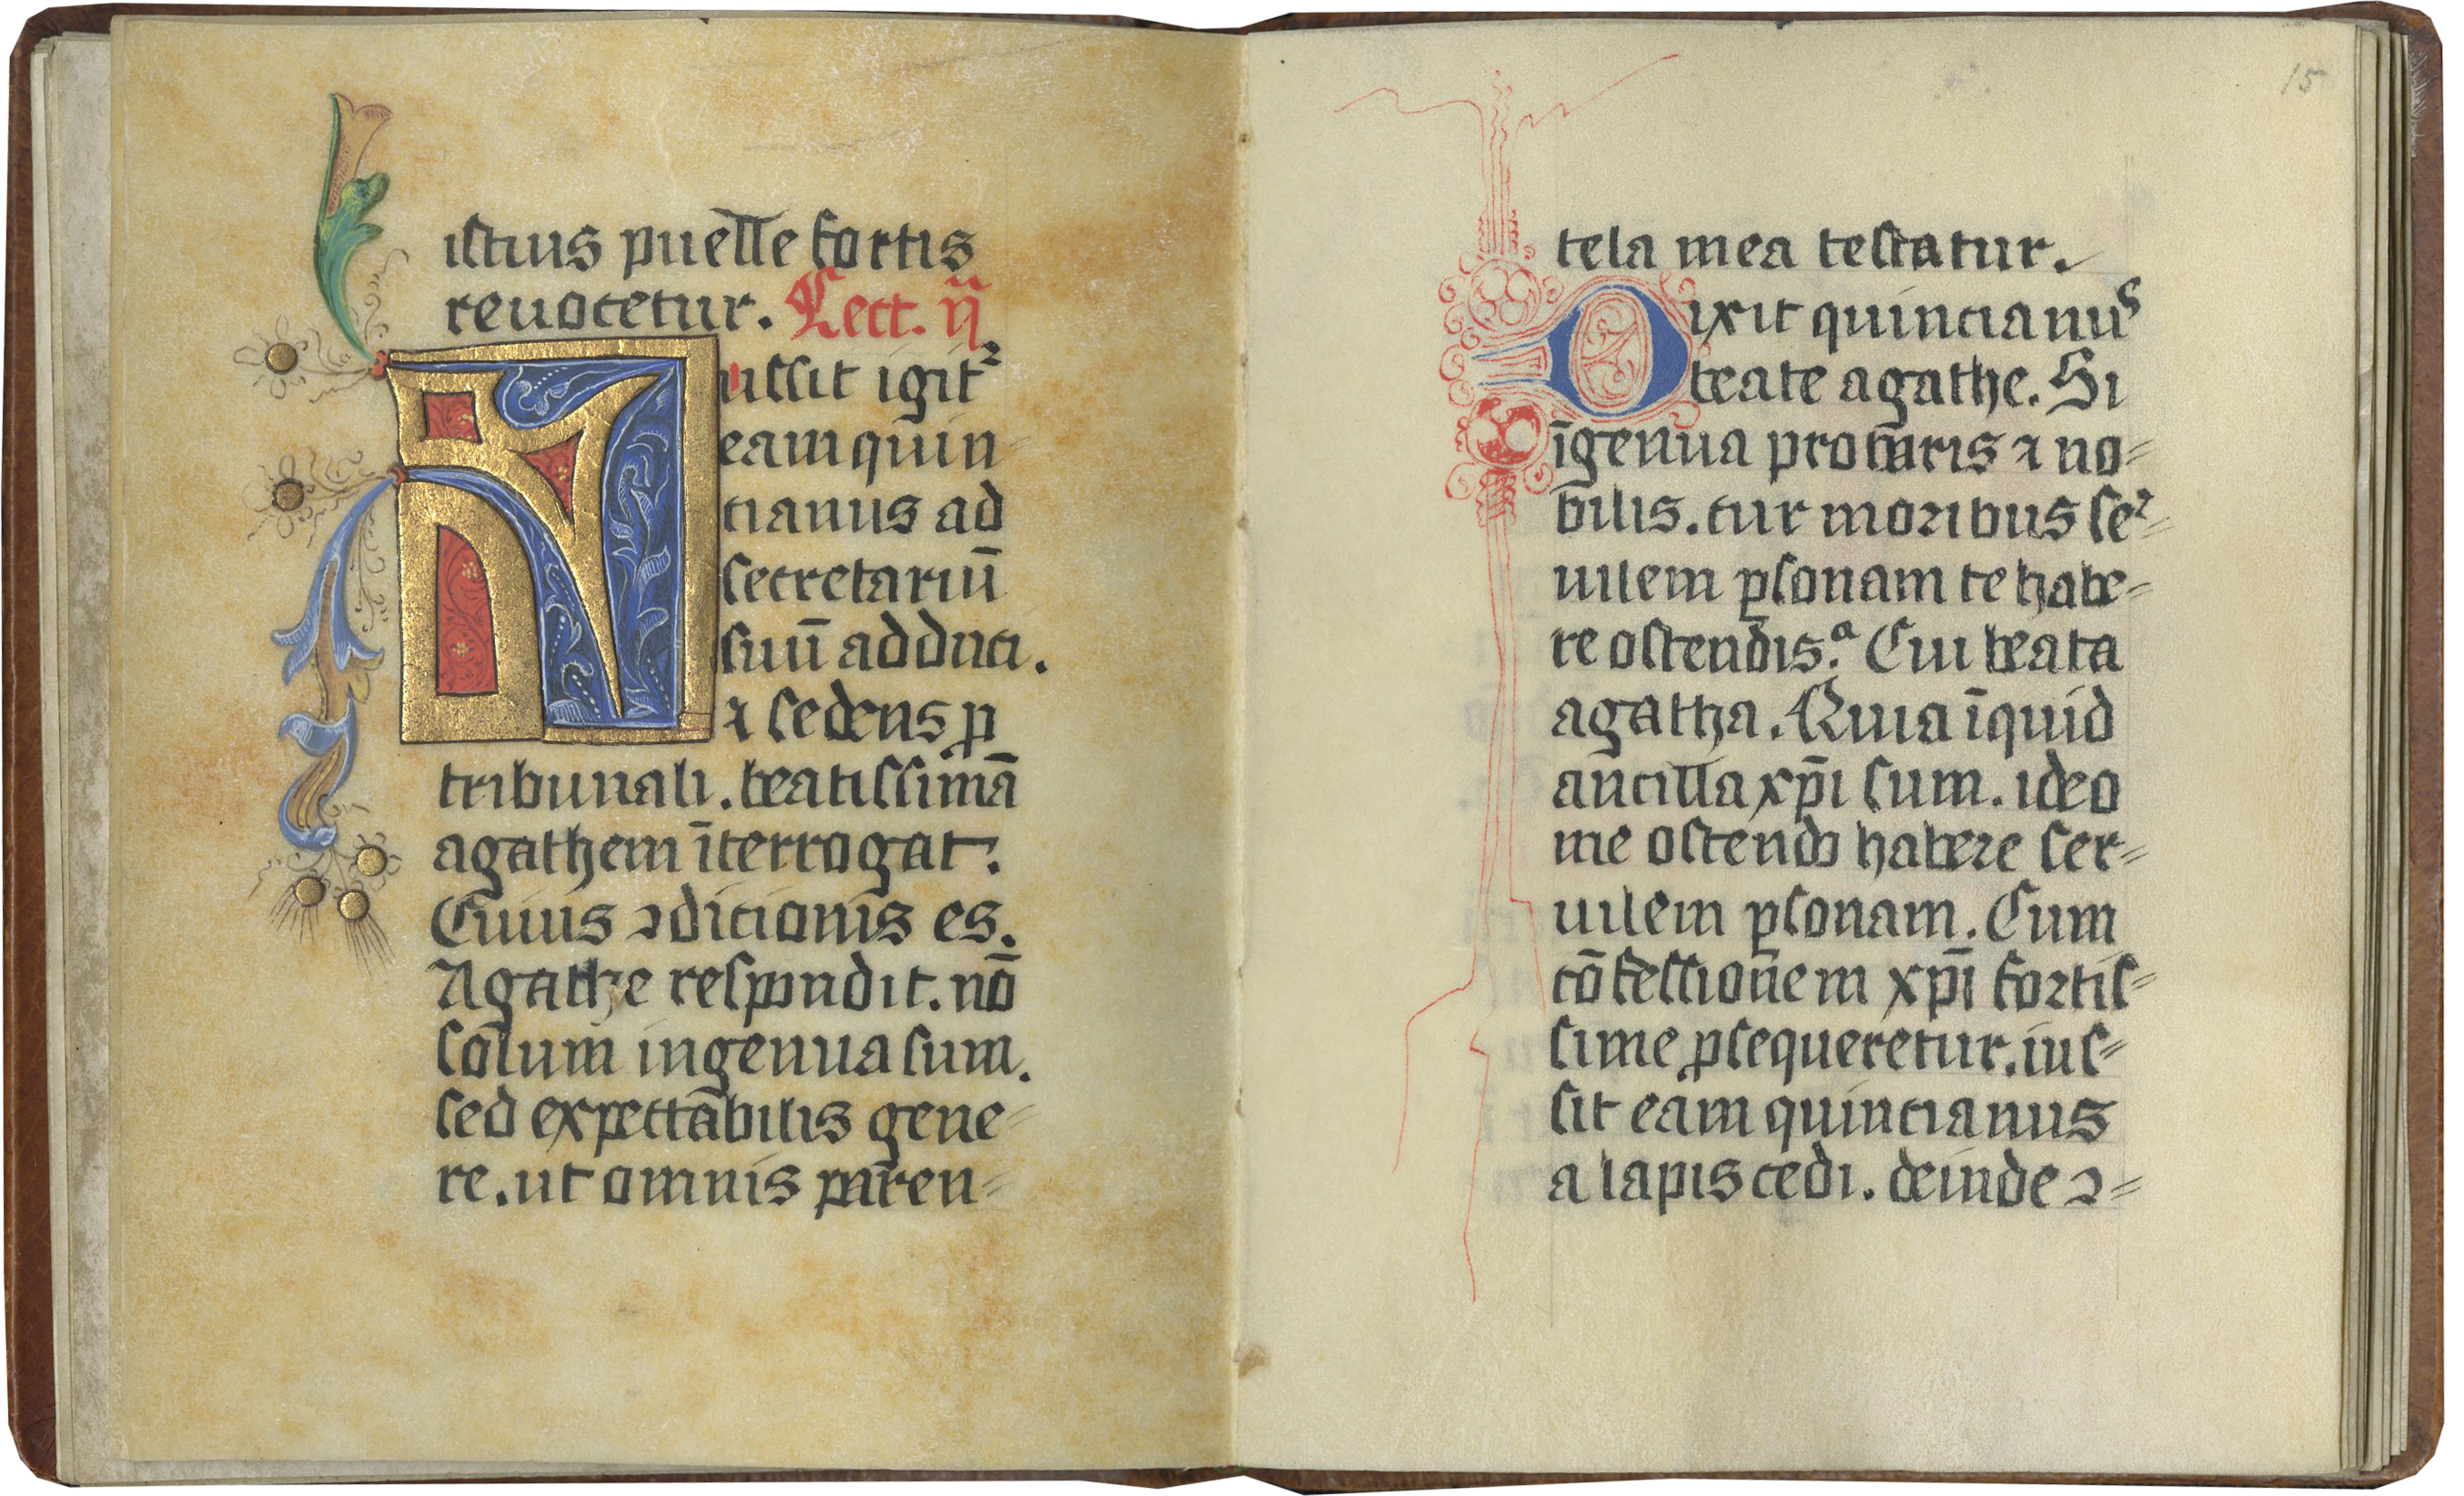 istius puelle fortis
reuocetur. Lect. ij
ussit igitꝰ
eam quin=
cianus ad
secretariū
suū adduci.
⁊ sedens ꝓ
tribunali. beatissimā
agathem īterrogat.
Cuius ꝯdicionis es.
Agathe respondit. nō
solum ingenua sum.
sed expectābilis gene=
re. ut omnis paren=
15
tela mea testatur.
Dixit quincianus
beate agathe. Si
īgenua procuris ⁊ no=
bilis. cur moribus se=
uilem ꝑsonam te habe=
re ostendis. Cui beata
agatha. Quia īquid
ancilla xp̄i sum. ideo
me ostendo habere ser=
uilem ꝑsonam. Cum
cōfessionem xp̄i fortis=
sime ꝓsequeretur. ius=
sit eam quincianus
alapis cedi. deinde ꝯ=